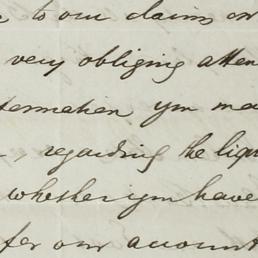 to our claims on
very obliging atten
formation you ma
, regarding the liqu
whether you have
for our account